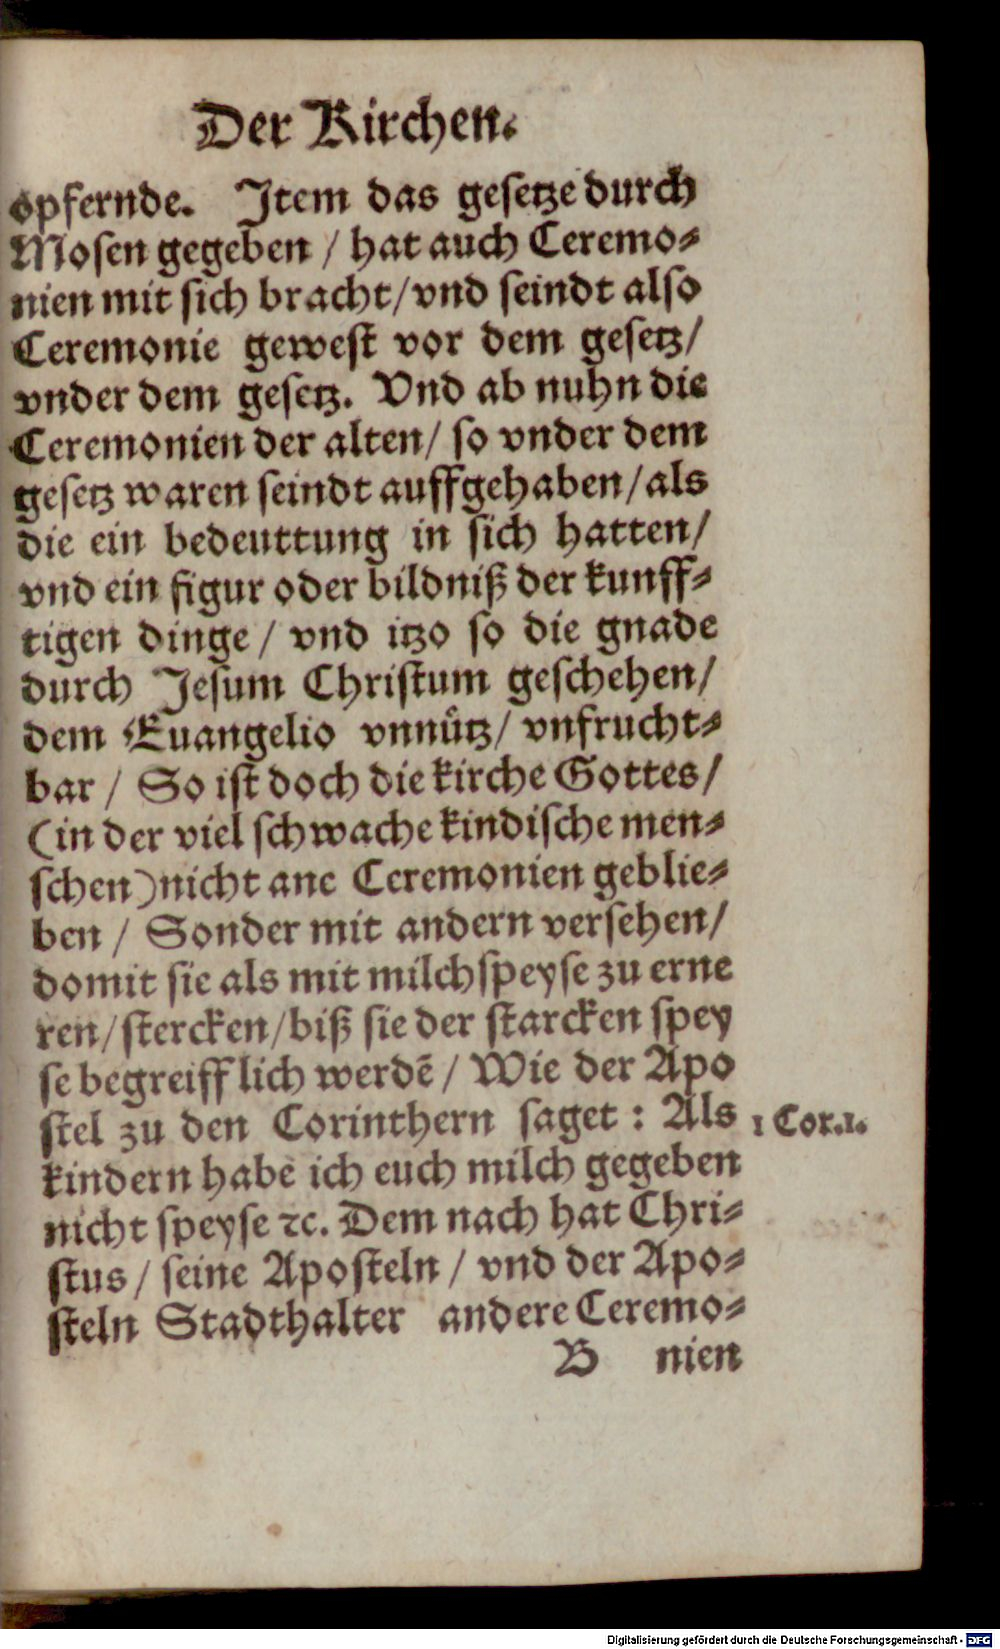 Der Kirchen.
opfernde. Item das gesetze durch
Mosen gegeben / hat auch Ceremo⸗
nien mit sich bracht / vnd seindt also
Ceremonie gewest vor dem gesetz /
vnder dem gesetz. Vnd ab nuhn die
Ceremonien der alten / so vnder dem
gesetz waren seindt auffgehaben / als
die ein bedeuttung in sich hatten /
vnd ein figur oder bildniß der kunff⸗
tigen dinge / vnd itzo so die gnade
durch Jesum Christum geschehen /
dem Euangelio vnnütz / vnfrucht⸗
bar / So ist doch die kirche Gottes /
(in der viel schwache kindische men⸗
schen) nicht ane Ceremonien geblie⸗
ben / Sonder mit andern versehen /
domit sie als mit milchspeyse zu erne
ren / stercken / biß sie der starcken spey
se begreifflich werdē / Wie der Apo
stel zu den Corinthern saget : Als 1 Cor.1.
kindern habe ich euch milch gegeben
nicht speyse ⁊c. Dem nach hat Chri⸗
stus / seine Aposteln / vnd der Apo⸗
steln Stadthalter andere Ceremo⸗
B nien
Digitalisierung gefördert durch die Deutsche Forschungsgemeinschaft - DFG